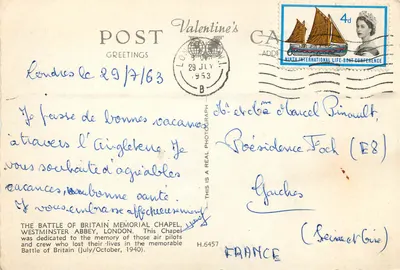 Valentine's
POST CARD
GREETINGS
4d
NINTH INTERNATIONAL LIFE-BOAT CONFERENCE
29 JLY
1963
B
Londres le 29/7/63
Je passe de bonnes vacances
à travers l'Angleterre. Je
vous souhaite d'agréables
vacances, bonne santé.
Je vous embrasse affectueusement
THE BATTLE OF BRITAIN MEMORIAL CHAPEL,
WESTMINSTER ABBEY, LONDON. This Chapel
was dedicated to the memory of those air pilots
and crew who lost their lives in the memorable
Battle of Britain (July/October, 1940).
H.6457
THIS IS A REAL PHOTOGRAPH
et Marcel Pinault,
Résidence Foch (E8)
Garches
(Seine et Oise)
FRANCE